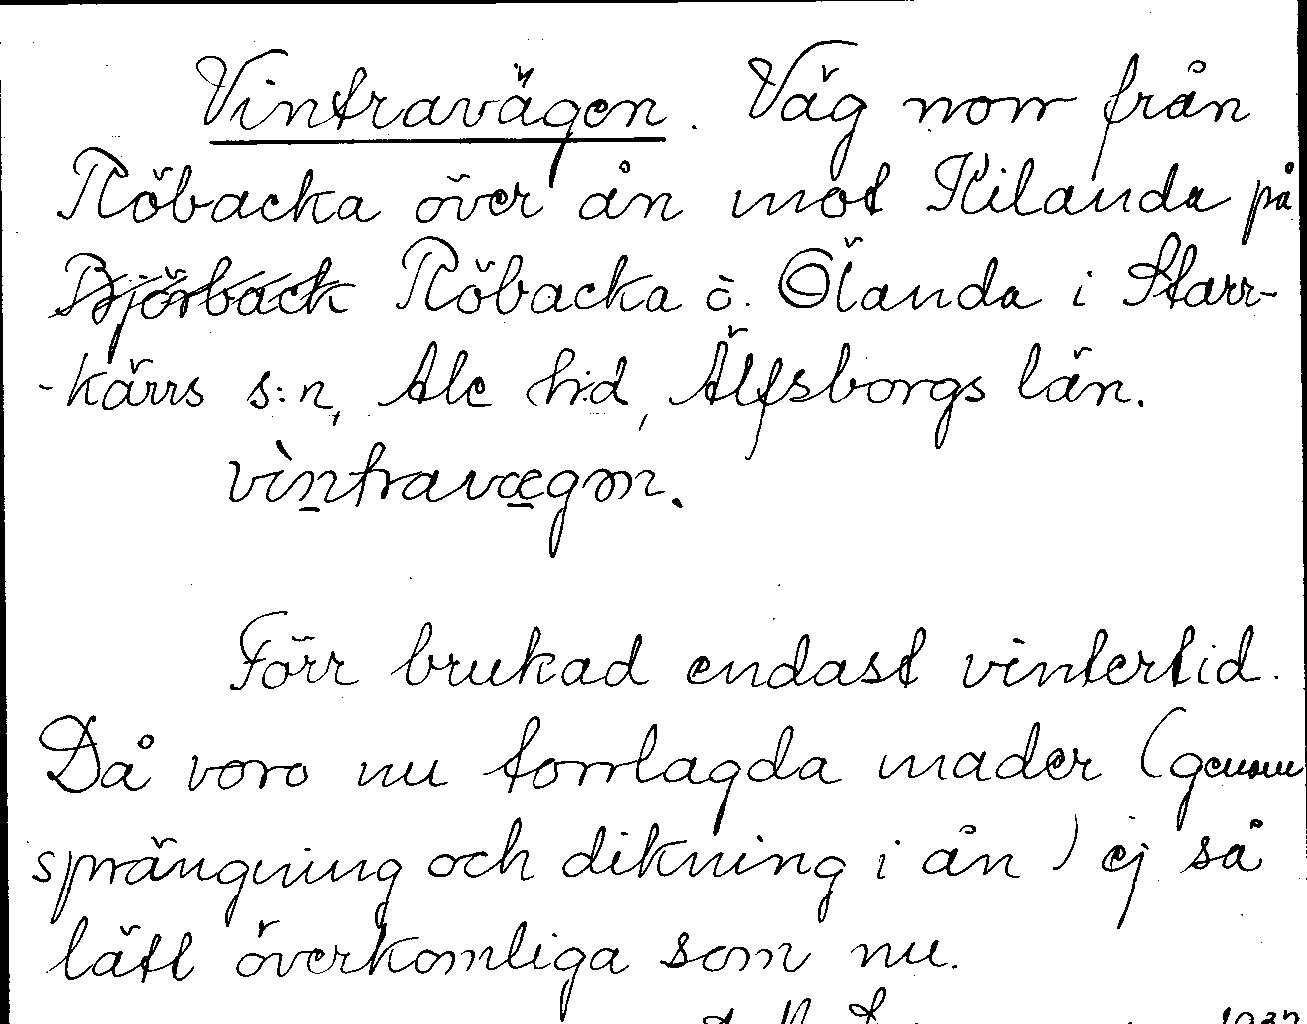 Vintravägen. Väg norr från
Röbacka över ån mot Kilanda på
Björbäck Röbacka ö. Ölanda i Starr-
-kärrs s:n, Ale h:d, Älfsborgs län.
vìntravægən.
Förr brukad endast vintertid.
Då voro nu torrlagda mader (genom
sprängning och dikning i ån) ej så
lätt överkomliga som nu.